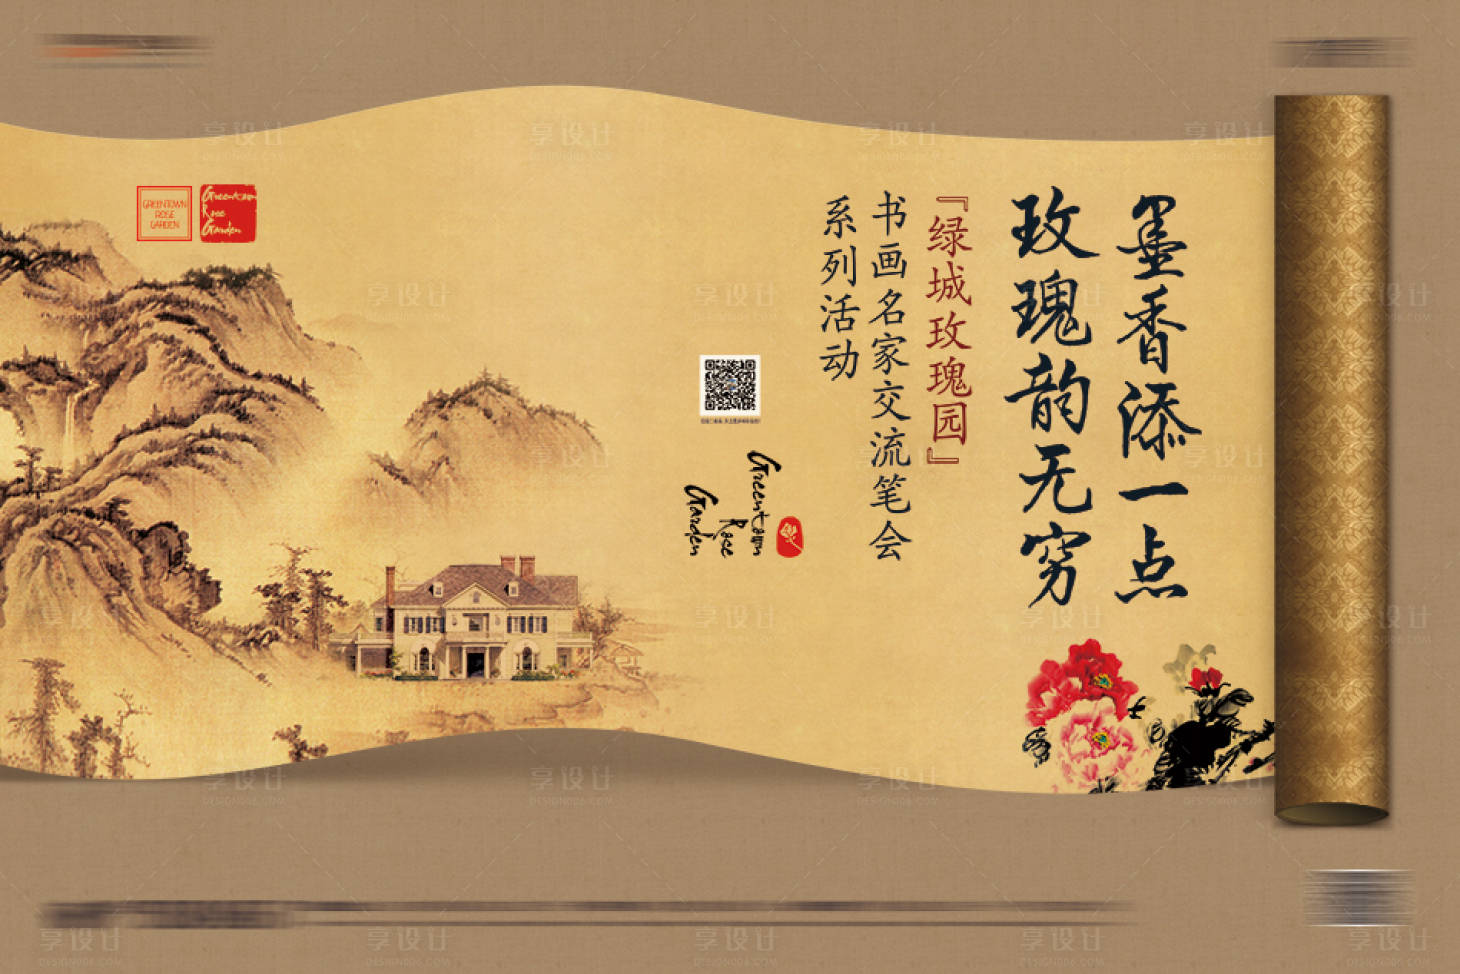 墨香添一点
玫瑰韵无穷
『绿城玫瑰园』
书画名家交流笔会
系列活动
Greentown
Rose
Garden
GREENTOWN
ROSE
GARDEN
Greentown
Rose
Garden
享设计
DESIGN006.COM